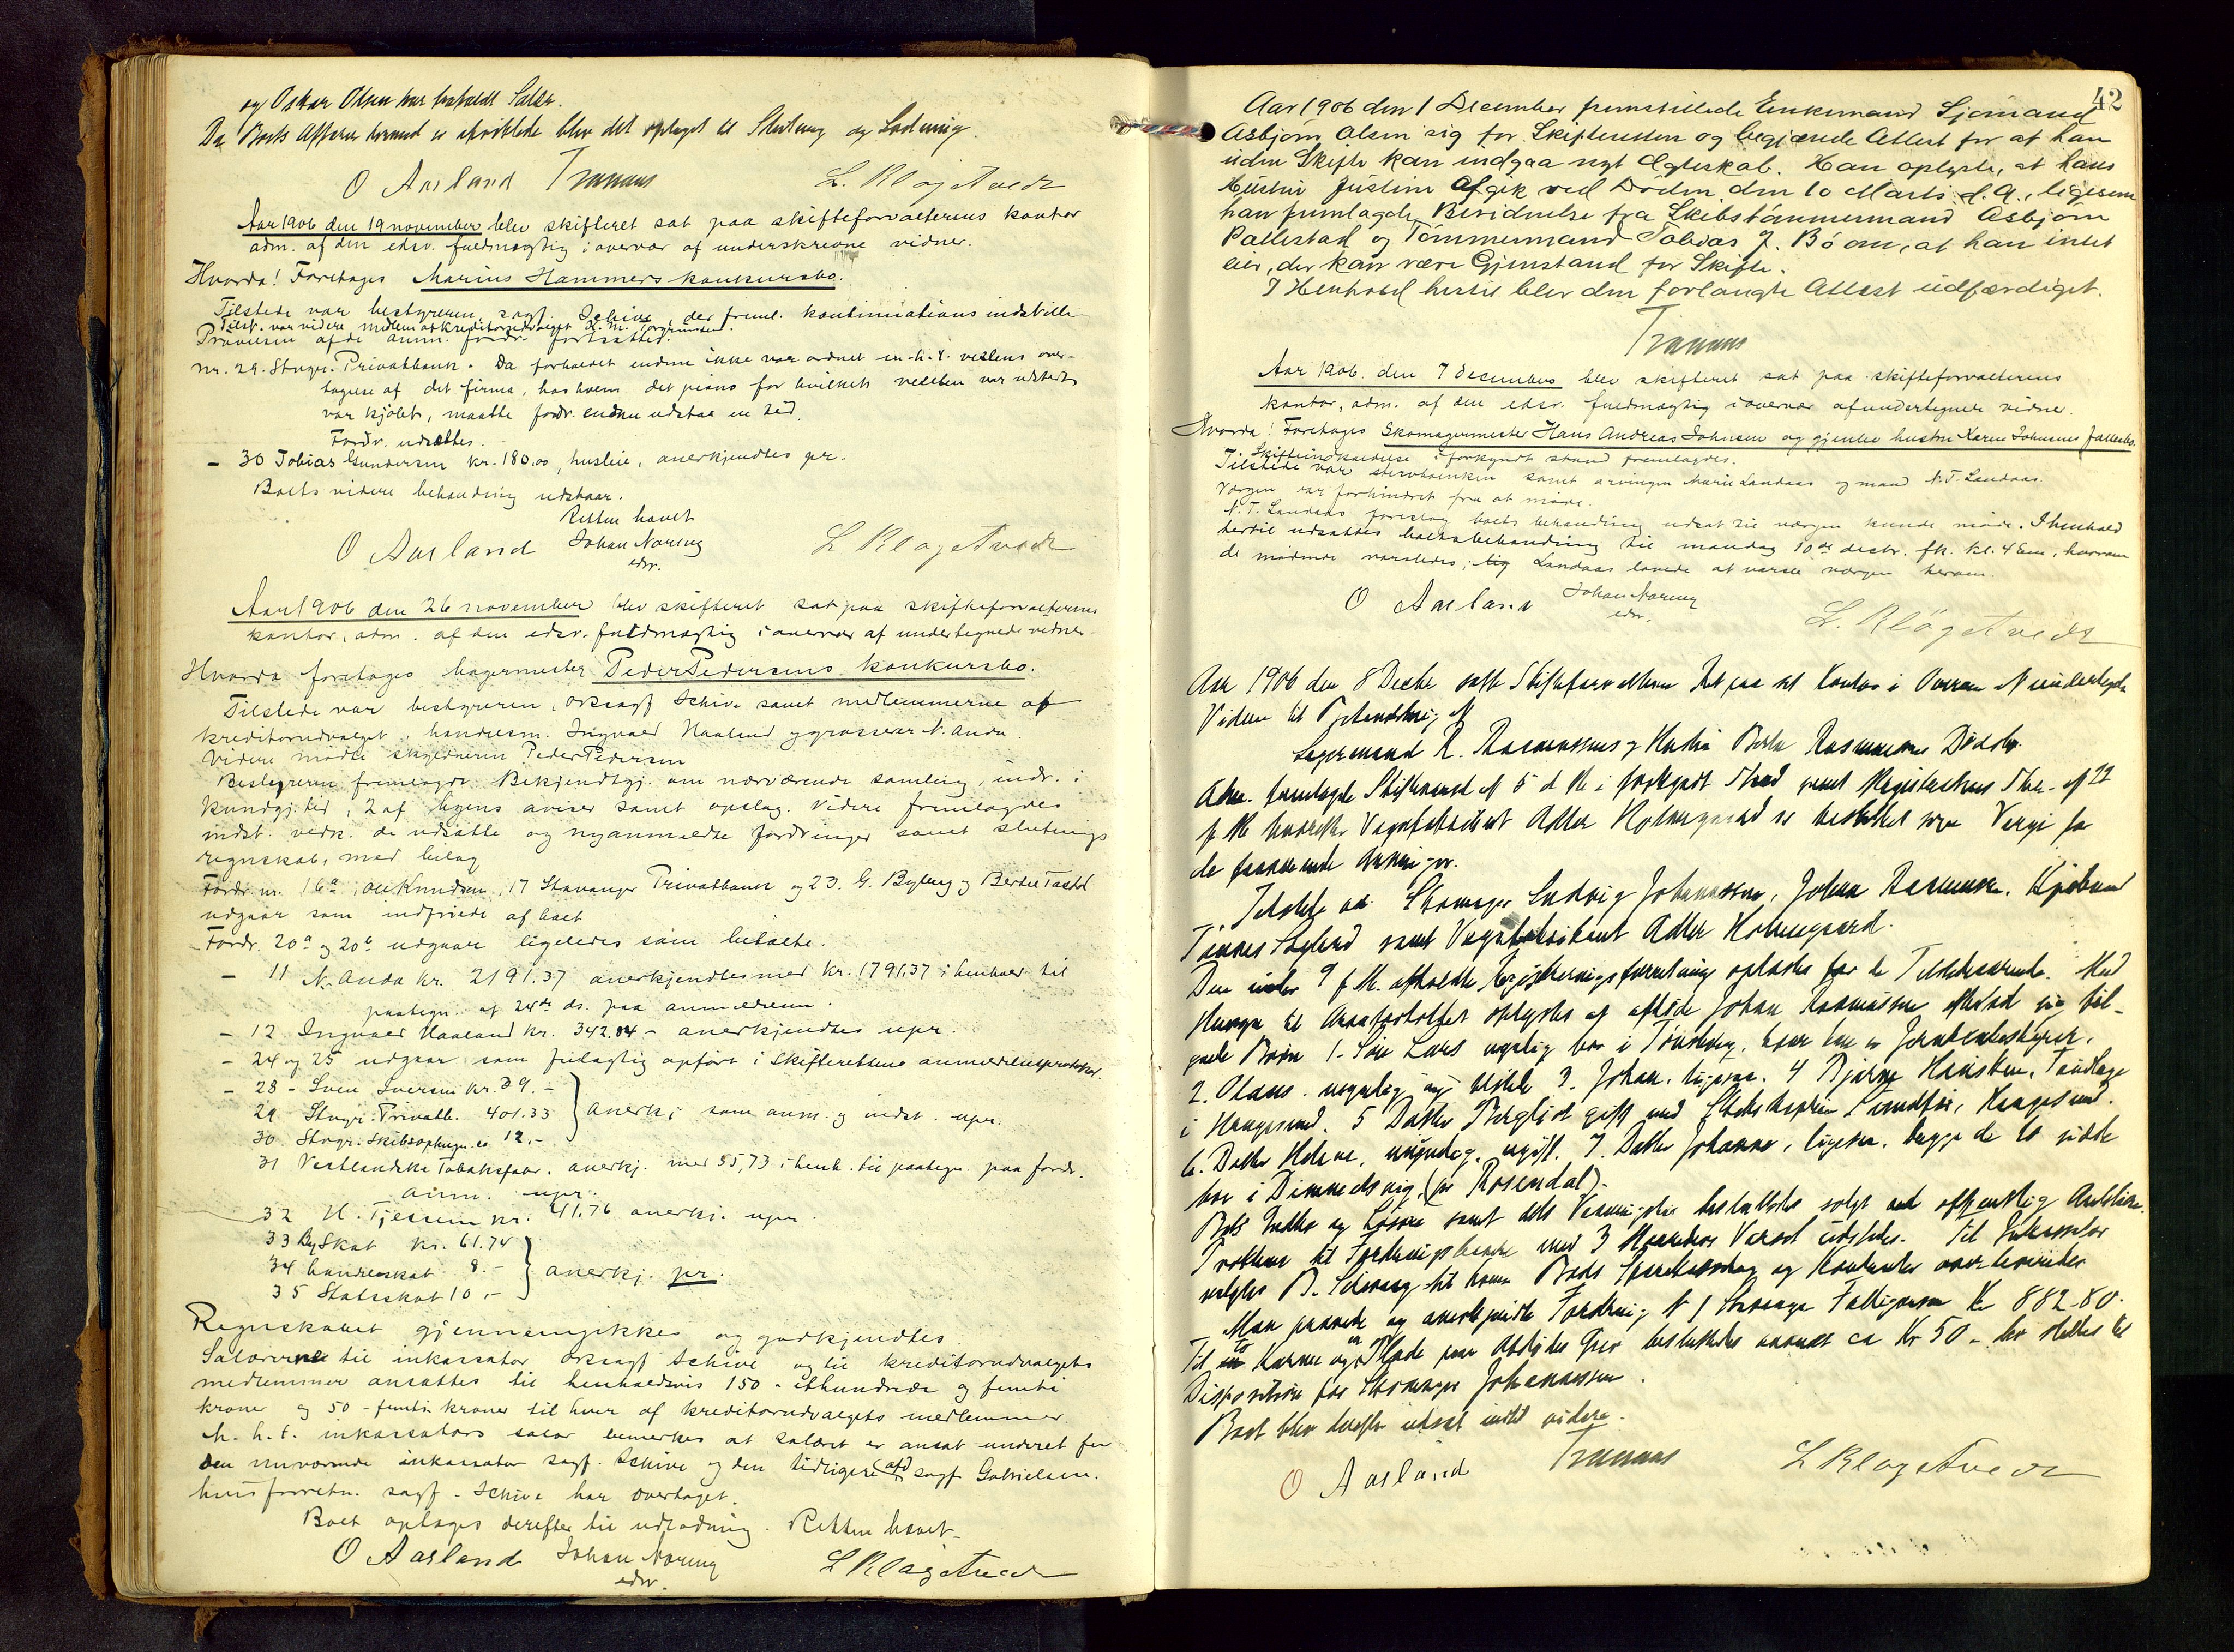 og Oskar Olsen har frafaldt Salær.
Da Boets Affærer hermed er afviklede blev det optaget til Slutning og Lodning.
O Aarland Tranaas L. Kløgetvedt
Aar 1906 den 19 november blev skifteret sat paa skifteforvalterens kontor
adm. af den edsv. fuldmægtig i overvær af underskrevne vidner.
Hvorda! Foretoges Marius Hammers konkursbo.
Tilstede var bestyreren, sagf. Schive, der freml. kontinuations indstille
Tilst. var videre medlem af kreditorudvalget K. M. Torgrimsen.
Prøvelsen af de anm. fordr. fortsattes.
Nr. 29. Stvgr. Privatbank. Da forholdet endnu ikke var ordnet m. h. t. vexlens over-
tagelse af det firma, hos hvem det piano for hvilket vexlen var udstedt
var kjøbt, maatte fordr. endnu udstaa en tid.
Fordr. udsættes.
- 30 Tobias Gundersen kr. 180,00, husleie, anerkjendtes pr.
Boets videre behandling udstaar.
Retten hævet
O Aarland Johan Noreng L. Kløgetvedt
edsv.
Aar 1906 den 26 november blev skifteret sat paa skifteforvalterens
kontor, adm. af den edsv. fuldmægtig i overvær af undertegnede vidner.
Hvorda foretoges bagermester Peder Pedersens konkursbo.
Tilstede var bestyreren, orsagf Schive samt medlemmerne af
kreditorudvalget, handlesm. Ingvald Haaland og grosserer N. Anda.
Videre mødte skyldneren Peder Pedersen
Bestyreren fremlagde Bekjendtgj. om nærværende samling, indr. i
kundgj.tid, 2 af byens aviser samt opslag. Videre fremlagdes
indst. vedr. de udsatte og nyanmeldte fordringer samt slutnings
regnskab, med bilag
Fordr. nr. 16a, Ole Knudsen, 17 Stavanger Privatbank og 23. G. Byberg og Bertel Tastad
udgaar som indfriede af boet
Fordr. 20a og 20b udgaar ligeledes som betalte.
- 11 N. Anda kr. 2191.37 anerkjendtes med kr. 1791.37 i henhold til
paategn. af 24de ds. paa anmeldelsen.
- 12 Ingvald Haaland kr. 342.84 - anerkjendtes upr.
- 24 og 25 udgaar som feilagtig opført i skifterettens anmeldelsesprotokol.
- 28 - Sven Iversen kr. 39.-
29 Stvgr. Privatb. 401.33 anerkj som anm. og indst. upr.
30. Stvgr. Skibsophugn. co 12,-
31 Vestlandske Tobaksfabr. anerkj. med 55,73 i henh. til paategn. paa fordr.
anm. upr.
32 H. Tjessem kr. 41.76 anerkj. upr.
33 BySkat kr. 61.74
34 handelsskat 8.- anerkj. pr.
35 Statsskat 10,-
Regnskabet gjennemgikkes og godkjendtes.
Salærerne til inkassator orsagf Schive og til kreditorudvalgets
medlemmer ansattes til henholdsvis 150 - ethundrede og femti
kroner og 50 - femti kroner til hver af kreditorudvalgets medlemmer.
M. h. t. inkassators salær bemerkes at salæret er ansat underet for
den nuværende inkassator sagf. Schive og den tidligere afd. sagf Gabrielsen.
hvis forretn. sagf. Schive har overtaget.
Boet optages derefter til udlodning. Retten hævet
O Aarland Johan Noreng L Kløgetvedt
edsv.
42
Aar 1906 den 1 December fremstillede Enkemand Sjømand
Asbjørn Olsen sig for Skifteretten og begjærede Attest for at han
uden Skifte kan indgaa nyt Ægteskab. Han oplyste, at hans
Hustru Justine afgik ved Døden den 10 Marts d. A., ligesom
han fremlagde Bevidnelse fra Skibstømmermand Asbjørn
Pallestad og Tømmermand Tobias J. Bøom, at han intet
eier, der kan være Gjenstand for Skifte.
I Henhold hertil blev den forlangte Attest udfærdiget.
Tranaas
Aar 1906 den 7 december blev skifteret sat paa skifteforvalterens
kontor, adm. af den edsv. fuldmægtig i overvær af undertegnede vidner.
Hvorda! Foretoges Skomagermester Hans Andreas Johnsen og gjenlev. hustru Karen Johnsens fællesbo.
Skifteindkaldelse i forkyndt stand fremlagdes.
Tilstede var stervboenken samt arvingen Marie Landaas og mand N. T. Landaas.
Værgen var forhindret fra at møde.
N. T. Landaas foreslog boets behandling udsat til værgen kunde møde. I henhold
hertil udsattes boets behandling til mandag 10de decbr. fk. kl. 4 Em., hvorom
de mødende varsledes; Landaas lovede at varsle værgen herom.
O Aarland Johan Noreng L. Kløgetvedt
edsv.
Aar 1906 den 8 Decbr satte Skifteforvalteren Ret paa sit Kontor i Overvær af undertegnede
Vidner til Behandling af
Lægsmand R. Rasmussens og Hustru Berta Rasmussens Dødsbo.
Adm. fremlagde Skiftevarsel af 5 d M. i forkyndt Stand samt Magistratens Skr. af 22
f. M. hvorefter Vognfabrikant Adler Holmegaard er beskikket som Verge for
de fraværende Arvinger.
Tilstede var Skomager Ludvig Johannessen, Johan Rasmussen, Kjøbmand
Tønnes Søyland samt Vognfabrikant Adler Holmegaard.
Den 9 f. M. afholdte Registreringsforretning oplæstes for de Tilstedeværende. Med
Hensyn til Arveforholdet oplystes at afdøde Johan Rasmussen efterlod sig føl-
gende Børn 1. Søn Lars myndig bor i Tønsberg, hvor han er Jernbanebestyrer.
2. Olaus. myndig 3. Johan. ligesaa. 4 Bjarne Kristian, Tandlæge
i Haugesund. 5 Datter Bergliot gift med Skibskaptein Sundfør, Haugesund.
6. Datter Helene, umyndig. ugift. 7. Datter Johanne, ligesaa, begge de to sidste
bor i Dimmelsvig (pr Rosendal).
Boets Indbo og Løsøre samt dets besluttedes solgt ved offentlig Auktion.
Proklama til Fordringshavere med 3 Maaneders Varsel udstedes. Til Inkassator
valgtes B. til hvem Boets Sparebankbog og Kontanter overleveredes
Man prøvede og anerkjendte Fordring N 1 Stavanger Fattigvæsen Kr 882-80.
Til to Karme og en Plade paa Afdødes Grav besluttedes anvendt ca Kr 50 - der stilles til
Disposition for Skomager Johannessen.
Boet blev derefter udsat indtil videre.
O Aarland Tranaas L Kløgetvedt